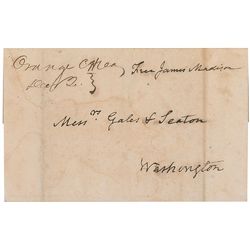 Orange CHVa } Free James Madison
Dec 12.
Messrs Gales & Seaton
Washington